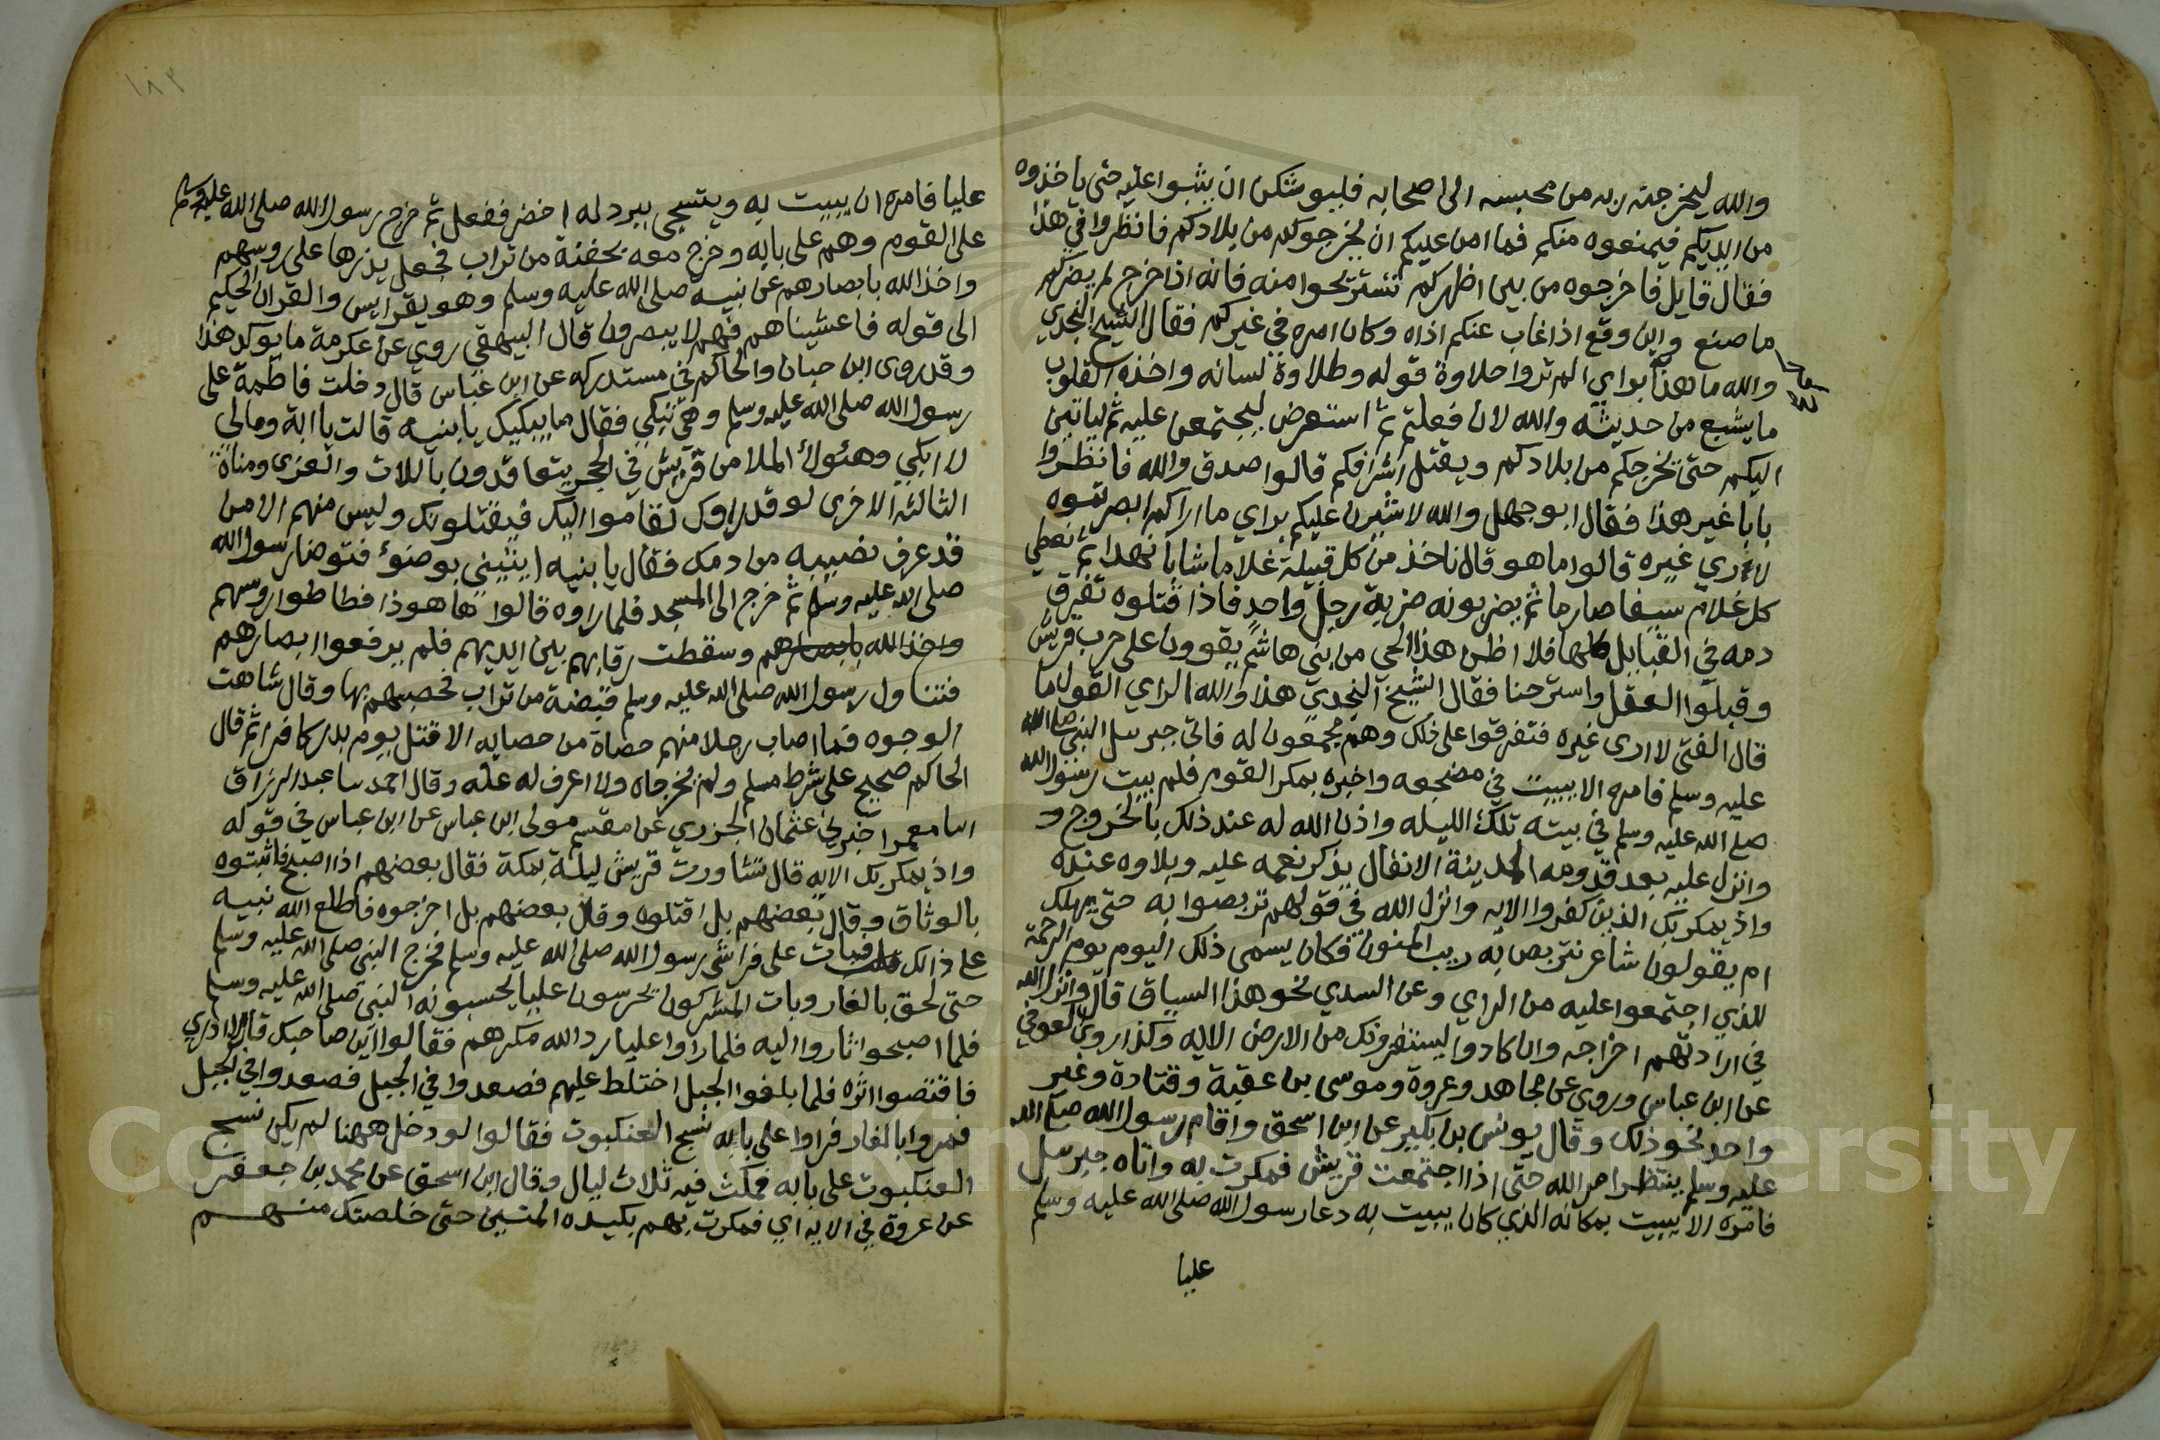 والله ليخرجنه ربه من محبسه الى اصحابه فليوشكن ان يثبوا عليه حتى ياخذوه
من ايديكم فيمنعوه منكم فما امن عليكم ان يخرجوكم من بلادكم فانظروا في هذا
فقال قايل فاخرجوه من بين اظهركم تستريحوا منه فانه اذا خرج لم يضركم
ما صنع واين وقع اذا غاب عنكم اذاه وكان امره في غيركم فقال الشيخ النجدي
والله ما هذا براي الم تروا حلاوة قوله وطلاوة لسانه واخذه القلوب
ما يشبع من حديثه والله لان فعلتم ثم استعرض ليجتمعن عليه ثم لياتين
اليكم حتى يخرجكم من بلادكم ويقتل اشرافكم قالوا صدق والله فانظروا
بابا غير هذا فقال ابو جهل والله لاشيرن عليكم براي ما اراكم ابصرتموه
لا ادري غيره قالوا ما هو قال ناخذ من كل قبيلة غلاما شابا نهدا ثم نعطي
كل غلام سيفا صارما ثم يضربونه ضربة رجل واحد فاذا قتلوه تفرق
دمه في القبايل كلها فلا اظن هذا الحي من بني هاشم يقوون على حرب قريش
وقبلوا العقل واسترحنا فقال الشيخ النجدي هذا والله الراي القول ما
قال الفتى لا ارى غيره فتفرقوا على ذلك وهم مجمعون له فاتى جبريل النبي صلى الله
عليه وسلم فامره الا يبيت في مضجعه واخبره بمكر القوم فلم يبيت رسول الله
صلى الله عليه وسلم في بيته تلك الليله واذن الله له عند ذلك بالخروج و
وانزل عليه بعد قدومه المدينة الانفال يذكر نعمه عليه وبلاوه عنده
واذ يمكر بك الذين كفروا الايه وانزل الله في قولهم تربصوا به حتى يهلك
ام يقولون شاعر نتربص به ريب المنون فكان يسمى ذلك اليوم يوم الزحمة
للذي اجتمعوا عليه من الراي وعن السدي نحو هذا السياق قال وانزل الله
في ارادتهم اخراجه وان كادوا ليستفزونك من الارض الايه وكذا روى العوفي
عن ابن عباس وروي عن مجاهد وعروة وموسى بن عقبة وقتادة وغير
واحد نحو ذلك وقال يونس بن بكير عن ابن اسحق واقام رسول الله صلى الله
عليه وسلم ينتظر امر الله حتى اذا اجتمعت قريش فمكرت به واتاه جبريل
فامره الا يبيت بمكانه الذي كان يبيت به دعا رسول الله صلى الله عليه وسلم
عليا
١٨٢
عليا فامره ان يبيت به ويتسجى ببرد له اخضر ففعل ثم خرج رسول الله صلى الله عليه وسلم
على القوم وهم على بابه وخرج معه بحفنة من تراب فجعل يذرها على روسهم
واخذ الله بابصارهم عن نبيه صلى الله عليه وسلم وهو يقرا يس والقران الحكيم
الى قوله فاغشيناهم فهم لا يبصرون قال البيهقي روي عن عكرمة ما يوكد هذا
وقد روى ابن حبان والحاكم في مستدركه عن ابن عباس قال دخلت فاطمة على
رسول الله صلى الله عليه وسلم وهي تبكي فقال ما يبكيك يا بنيه قالت يا ابة ومالي
لا ابكي وهئولاء الملا من قريش في الحجر يتعاقدون باللات والعزى ومناة
الثالثه الاخرى لو قد راوك لقاموا اليك فيقتلونك وليس منهم الا من
قد عرف نصيبه من دمك فقال يا بنيه ايتيني بوضوء فتوضا رسول الله
صلى الله عليه وسلم ثم خرج الى المسجد فلما راوه قالوا ها هو ذا فطاطوا روسهم
واخذ الله بابصارهم وسقطت رقابهم بين ايديهم فلم يرفعوا ابصارهم
فتناول رسول الله صلى الله عليه وسلم قبضة من تراب فحصبهم بها وقال شاهت
الوجوه فما اصاب رجلا منهم حصاة من حصايه الا قتل يوم بدر كافرا ثم قال
الحاكم صحيح على شرط مسلم ولم يخرجاه ولا اعرف له علة وقال احمد سا عبد الرزاق
اسا معمر اخبرني عثمان الجزري عن مقسم مولى ابن عباس عن ابن عباس في قوله
واذ يمكر بك الايه قال تشاورت قريش ليلة بمكة فقال بعضهم اذا اصبح فاثبتوه
بالوثاق وقال بعضهم بل اقتلوه وقال بعضهم بل اخرجوه فاطلع الله نبيه
على ذالك فبات على فراش رسول الله صلى الله عليه وسلم فخرج النبي صلى الله عليه وسلم
حتى لحق بالغار وبات المشركون يحرسون عليا يحسبونه النبي صلى الله عليه وسلم
فلما اصبحوا ثاروا اليه فلما راوا عليا رد الله مكرهم فقالوا اين صاحبك قال لا ادري
فاقتصوا اثره فلما بلغوا الجبل اختلط عليهم فصعدوا في الجبل فصعدوا في الجبل
فمروا بالغار فراوا على بابه نسج العنكبوت فقالوا لو دخل ههنا لم يكن نسج
العنكبوت على بابه فمكث فيه ثلاث ليال وقال ابن اسحق عن محمد بن جعفر
عن عروة في الايه اي فمكرت بهم بكيده المتين حتى خلصتك منهم